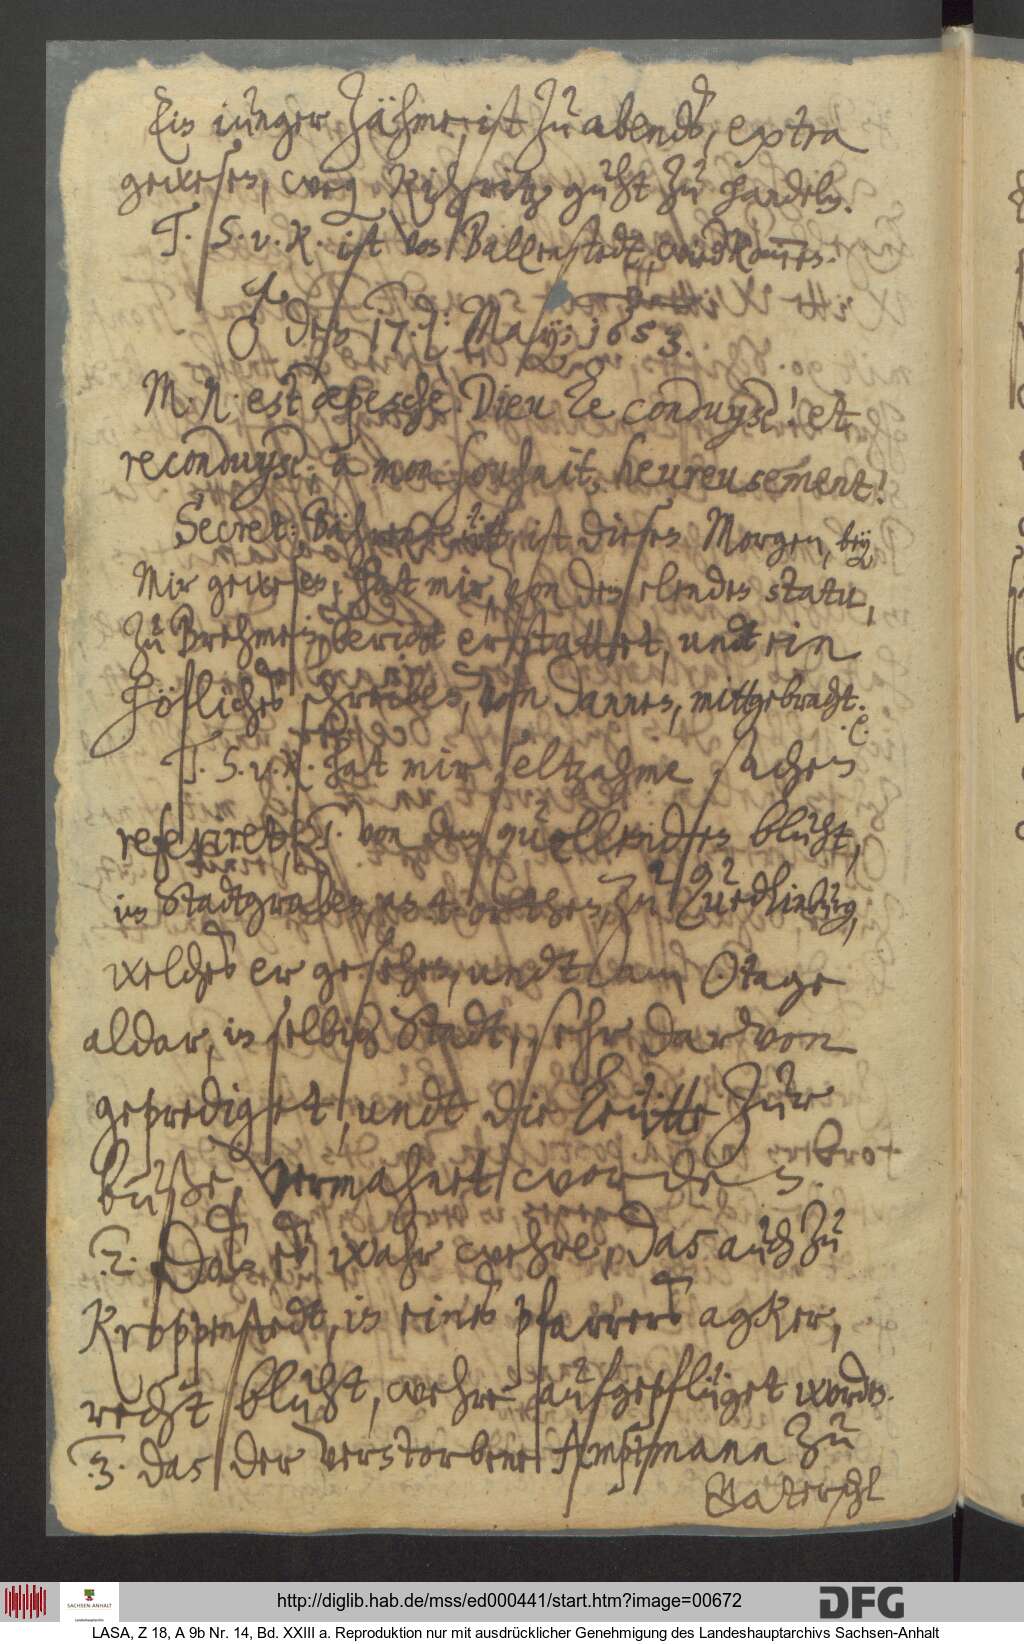 Ein iunger Jähne, ist zu abends, extra
gewesen, weg. guht zu handeln.
T. S. v. R. ist von Ballenstedt, wiedkommen.
♂ den 17. d: May: 1653.
M. N. est depesche. Dieu le conduyse! et
reconduyse, a mon souhait, heureusement!
Secret: ist diesen Morgen, bey
Mir gewesen, hat mir, von des elendes statu,
zu Brehmen, bericht erstattet, undt ein
höfliches schreiben, von dannen, mittgebracht.
T. S. v. R. hat mir seltzahme sachen
referiret, 1. von dem quellenden bluht,
im Stadtgraben, an 4 orthen, zu Quedlinburg,
welches er gesehen, undt am Otage
aldar, in selbiger Stadt, sehr dar von
geprediget, undt die Leütte zur
buße, vermahnet worden.
2. Daß es wahr wehre, das auch zu
Kroppenstedt, in eines pfarrers agker,
recht bluht, wehre aufgepflüget worden.
3. das der verstorbene Amptmann zu
http://diglib.hab.de/mss/ed000441/start.htm?image=00672
DFG
SACHSEN-ANHALT
Landeshauptarchiv
LASA, Z 18, A 9b Nr. 14, Bd. XXIII a. Reproduktion nur mit ausdrücklicher Genehmigung des Landeshauptarchivs Sachsen-Anhalt